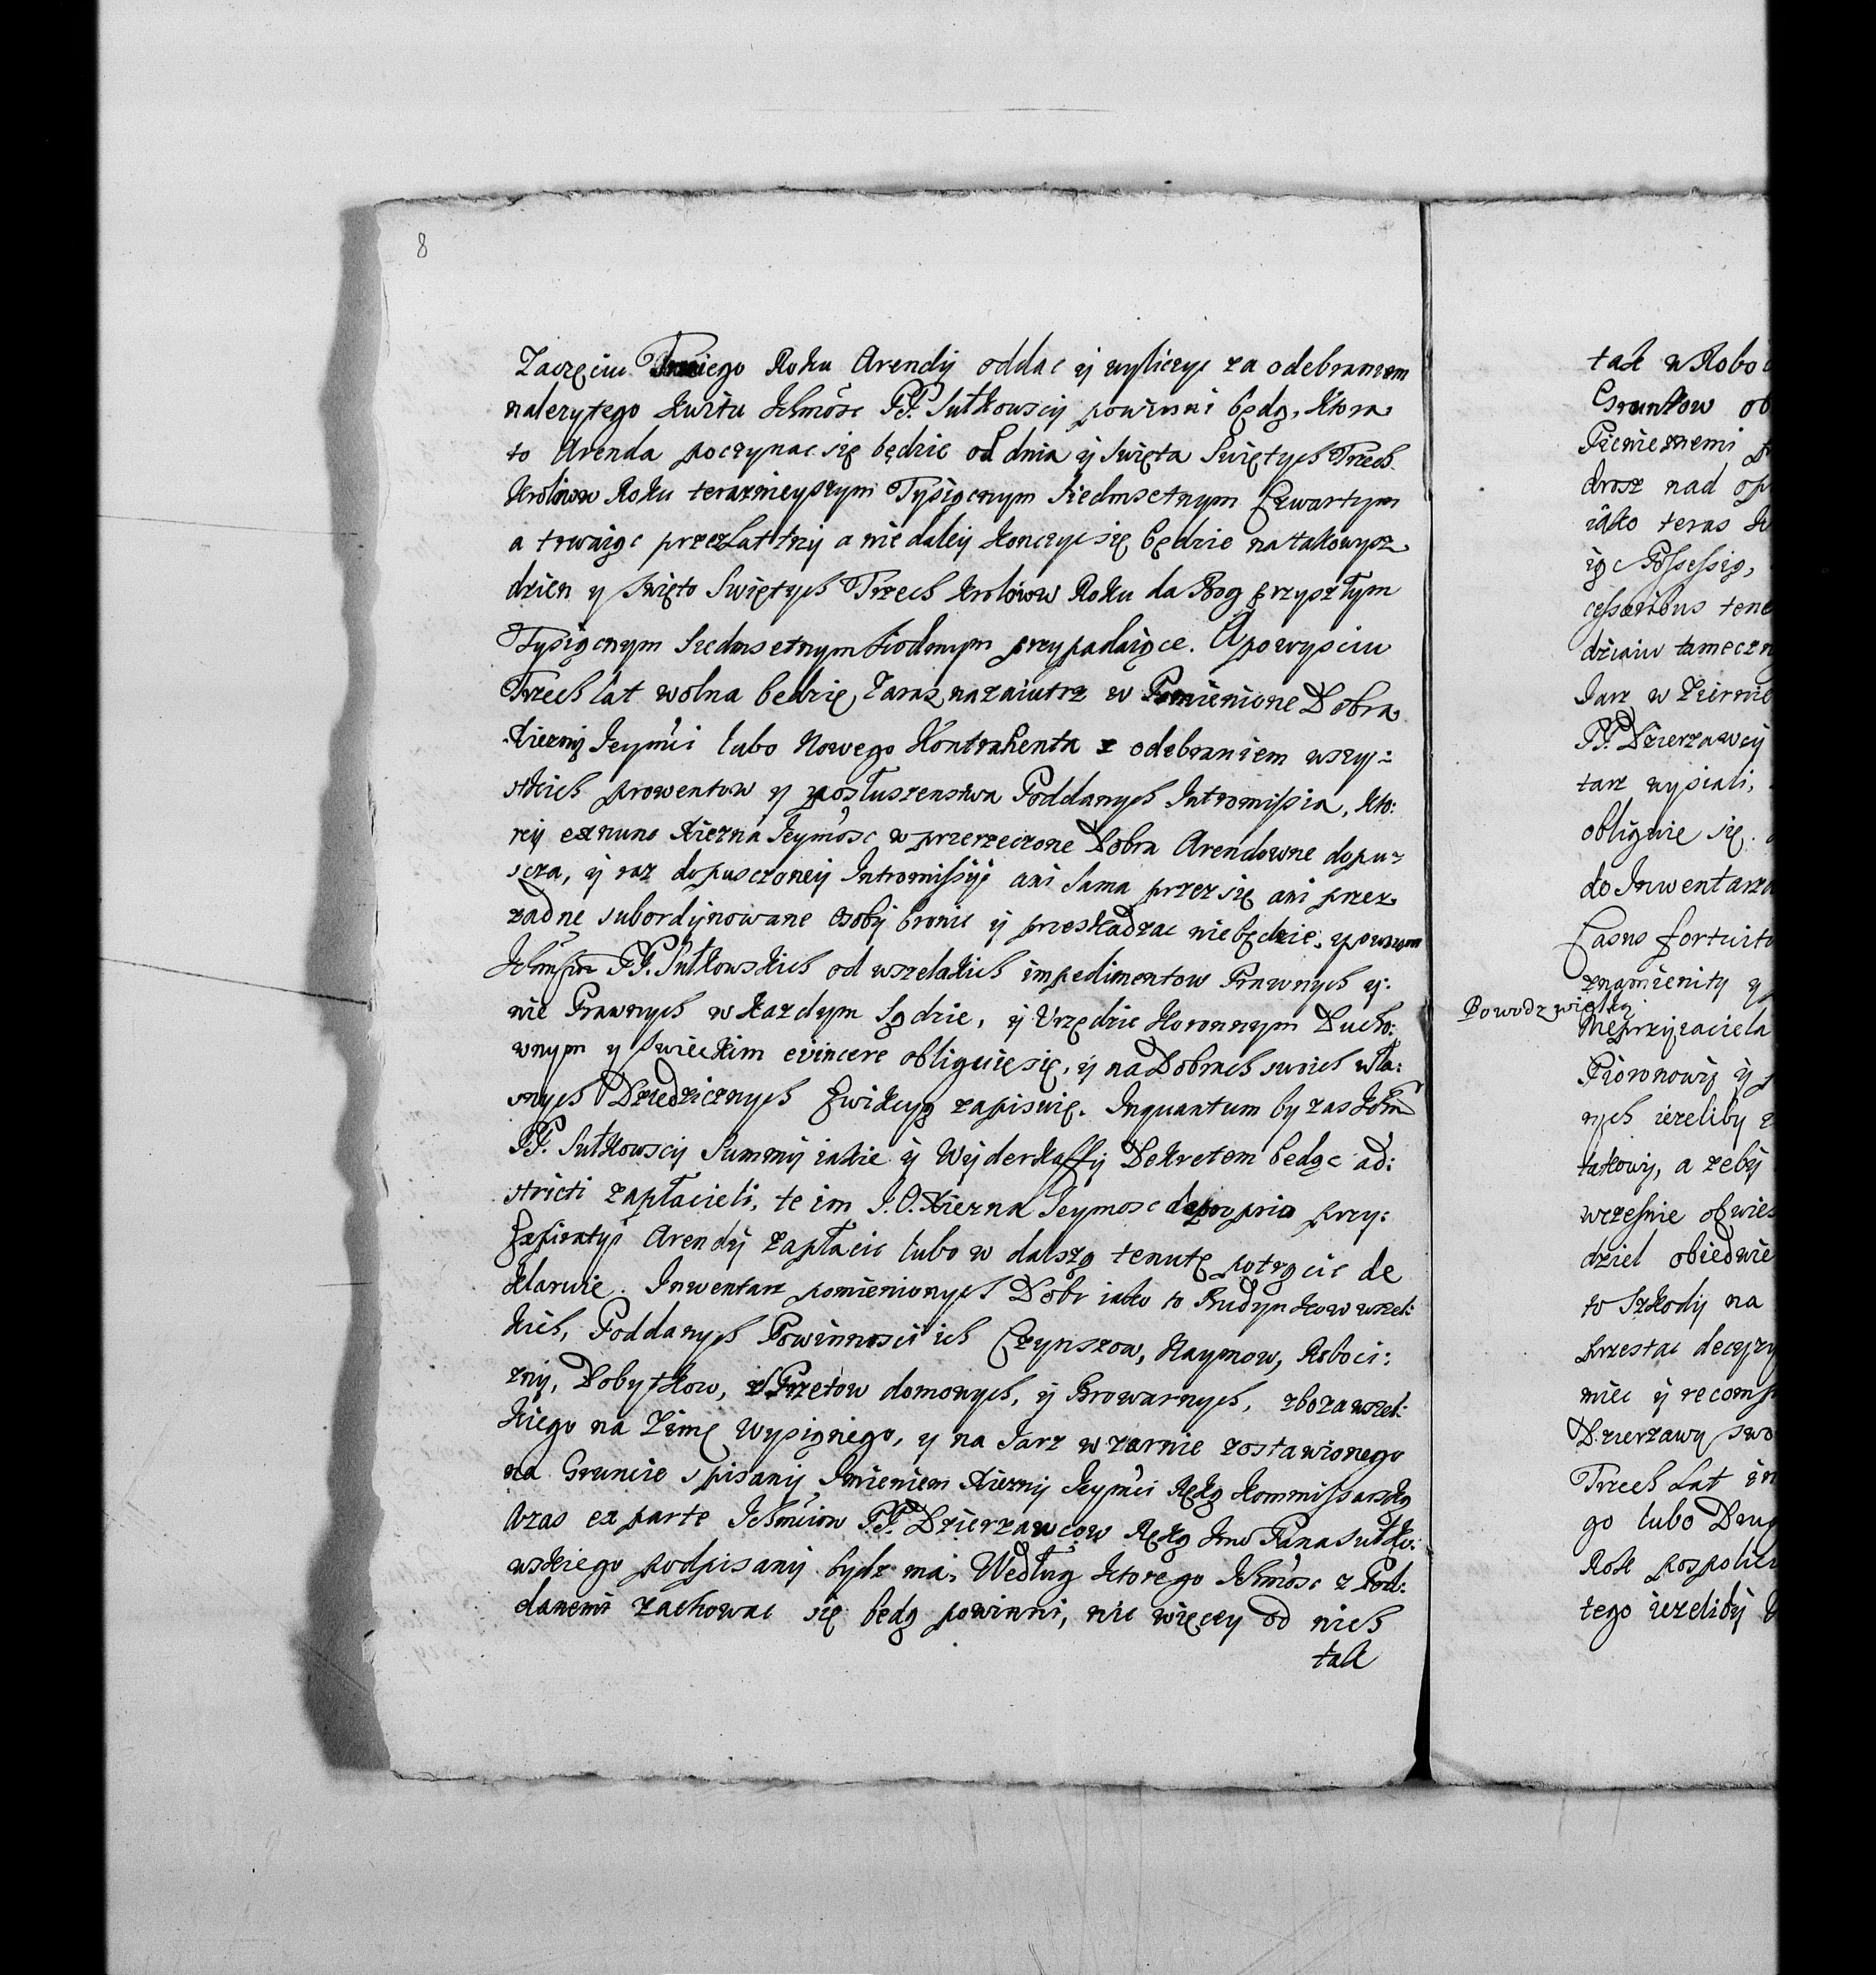 8
Zaczęciu Trzeciego Roku Arendy oddac ÿ wyliczyc za odebraniem
nalezytego kwitu Ichmośc PP. Sułkowscÿ powinni będą, ktora
to Arenda poczynac się będzie od dnia ÿ Swięta Swiętych Trzech
krolow Roku terazmieyszym Tysiącnym Siedmsetnym Czwartym
a trwaiąc przez Lat trzÿ a nie daleÿ konczyc się będzie na takowysz
dzien y Swięto Swiętych Trzech krolow Roku da Bog przyszłym
Tysiącnym Siedmsetnym Siodmym przypadaiące. A po wyisciu
Trzech lat wolna bedzie, Zaraz nazaiutrz w Pomienione Dobra
Xiezny Jeymci lubo Nowego Kontrahenta z odebraniem wszy:
stkich prowentow y posłuszenstwa Poddanych Intromissia, kto:
reÿ ex nunc Xiezna Jeymośc w przerzeczone Dobra Arendowne dopu:
scza, ÿ raz dopusczoneÿ Intromissÿi ani Sama przez się ani przez
zadne subordynowane osobÿ bronic ÿ przeskadzac niebędzie, y owszem
Ichmsciow PP. Sułkowskich od wszelakich impedimentow Prawnych ÿ:
nie Prawnych w kazdym Sądzie, ÿ Vrzędzie koronnym Ducho:
wnym y Swieckim evincere obliguie się, ÿ na Dobrach swoich wła:
snych Dziedzicznych Ewikcyą zapisuie. Inquantum by zas Ichm
PP. Sułkowscÿ Summÿ iakie ÿ Wÿderkaffÿ Dekretem bedąc ad:
stricti zapłacieli, te im J.O. Xiezna Jeymosc de proprio przy:
Exspiratyi Arendÿ zapłacic lubo w dalszą tenutę potrącic de
klaruie. Inwentarz pomienionych Dobr iako to Budynkow wszel:
kich, Poddanych Powinnosci ich Czynszow, Naymow, Roboci:
znÿ, Dobytkow, Sprzetow domowych, ÿ Browarnych, zboza wszel:
kiego na Zimę Wysianego, y na Jarz w zarnie zostawionego
na Gruncie spisanÿ Imieniem Xieznÿ Jeymci Ręką Kommissarską
A zas ex parte Ichmciow PP. Dzierzawcow Ręką Imc Pana Sułko:
wskiego podpisanÿ bydz ma, Według ktorego Ichmosc z Pod:
danemi zachowac się będą powinni, nic więcey od nich
tak
tak w Robo
Gruntow ob
Pieniezmemi
drosz nad
iako teras
ią Possessią,
cessoribus tene
dziaiu tameczn
Jarz w Ziernie
PP. Dzierzawcÿ
tarz wysiali,
obliguie się.
do Inwentarza
Casus fortuito
znamienity y
Powodz wielką
Nieprzyiaciela
Pioronowÿ ÿ
nych iezeliby
takowÿ, a zebÿ
wczesnie obwies
dziel obiedwie
to Szkody na
przestac decyzy
miec ÿ recomp
Dzierzawy swo
Trzech Lat
go lubo Drug
Role pospolic
tego iezelibÿ